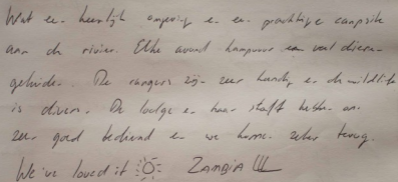 Wat een heerlijk omgeving en een prachtige campsite
aan de rivier. Elke avond kampvuur en veel dieren
geluiden. De rangers zijn zeer handig en de wildlife
is divers. De lodge en haar staff hebben ons
zeer goed bediend en we komen zeker terug.
We've loved it ZAMBIA !!!